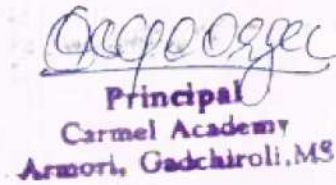 Principal
Carmel Academy
Armori, Gadchiroli, MS